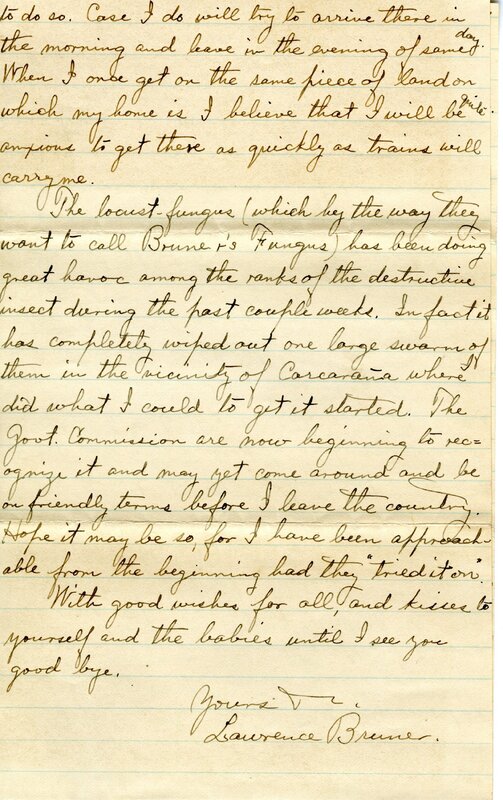 to do so. Case I do will try to arrive there in
the morning and leave in the evening of same day.
When I once get on the same piece of land on
which my home is I believe that I will be quite
anxious to get there as quickly as trains will
carry me.
The locust-fungus (which by the way they
want to call Bruner's Fungus) has been doing
great havoc among the ranks of the destructive
insect during the past couple weeks. In fact it
has completely wiped out one large swarm of
them in the vicinity of Carcaraña where I
did what I could to get it started. The
Govt. Commission are now beginning to rec=
ognize it and may yet come around and be
on friendly terms before I leave the country.
Hope it may be so, for I have been approach-
able from the beginning had they "tried it on".
With good wishes for all, and kisses to
yourself and the babies until I see you
good bye.
Yours
Lawrence Bruner.